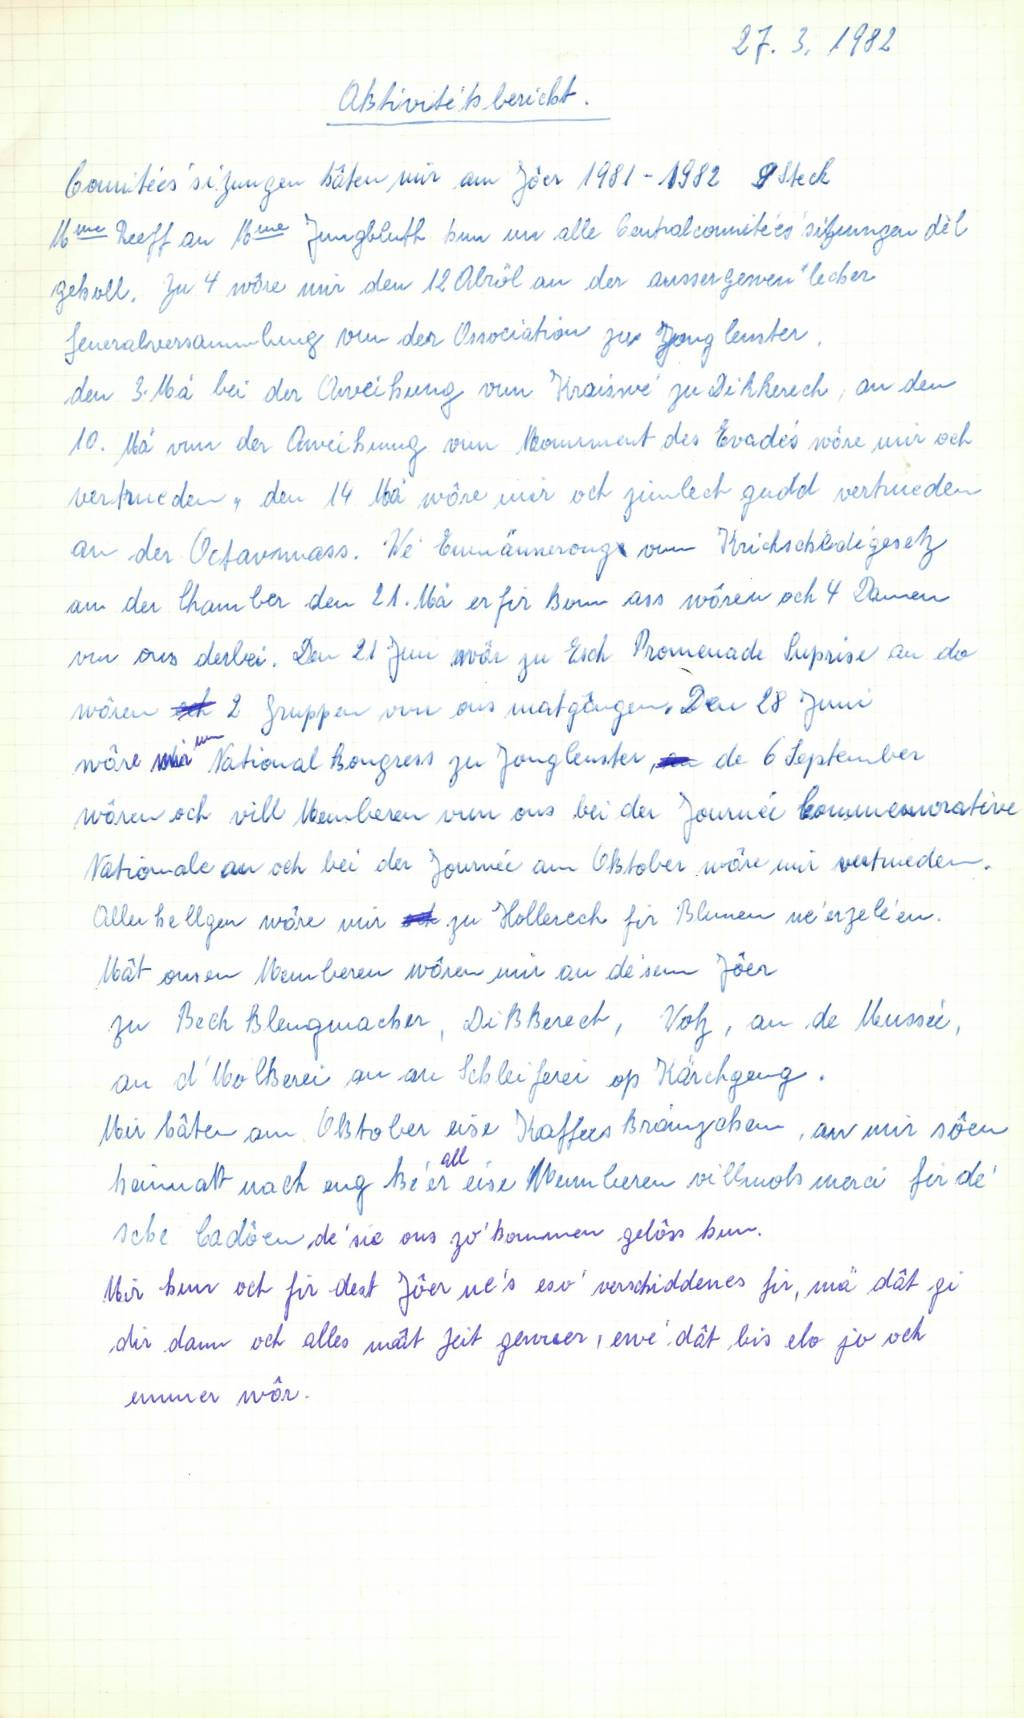 27. 3. 1982
Aktivitéitsbericht.
Comitéés'sitzungen hâten mir am Jôer 1981-1982 9 Steck
Mme Reeff an Mme Jungbluth hun un alle Centralcomitéés'sitzungen dël
geholl. Zu 4 wôre mir den 12 Abrël an der aussergewein'lecher
Generalversammlung vun der Association zu Jonglenster,
den 3. Má bei der Aweihung vum Kraizwé zu Dikkerech, an den
10. Má vun der Aweihung vum Monument des Evadés wôre mir och
vertrueden, den 14 Má wôre mir och zimlech gudd vertrueden
an der Octavsmass. Wé Emännerong vum Krichschiedégesetz
an der Chamber den 21. Má erfir komm ass wôren och 4 Damen
vun ons derbei. Den 21 Jun wôr zu Esch Promenade Suprise an do
wôren 2 Gruppen vun ons matgângen. Den 28 Juni
wôre mir um National Kongress zu Jonglenster, de 6 September
wôren och vill Memberen vun ons bei der Journée Commemorative
Nationale an och bei der Journée am Oktober wôre mir vertrueden.
Allerhellgen wôre mir zu Hollerech fir Blumen né'erzelé'en.
Mât onsen Memberen wôren mir an dé'sem Jôer
zu Bech Blengmacher, Dikkerech, Volz, an de Mussée,
an d'Molkerei an an Schleiferei op Kärchgeng.
Mir hâten am Oktober eise Kaffeeskränzchen, an mir sôen
heimatt nach eng ké'er all eise Memberen villmols merci fir dé'
sché Cadôen, dé'sie ons zo'kommen gelôss hun.
Mir hun och fir dest Jôer né's eso' verschiddenes fir, mä dât gi
dir dann och alles mât Zeit gewuer, ewé' dât bis elo jo och
emmer wôr.